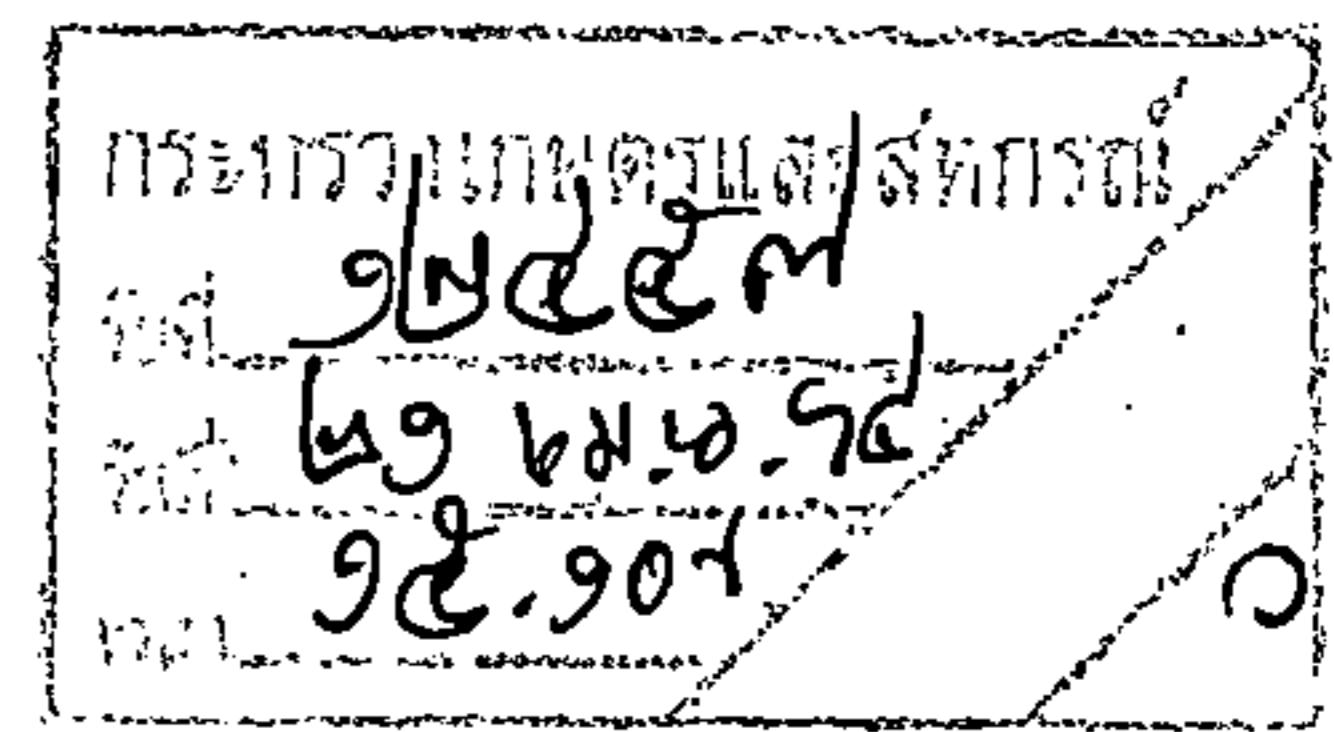 กระทรวงเกษตรและสหกรณ์
รับที่ ๑๒๔๕๗
วันที่ ๒๑ เม.ย. ๖๔
เวลา ๑๕.๑๐ น